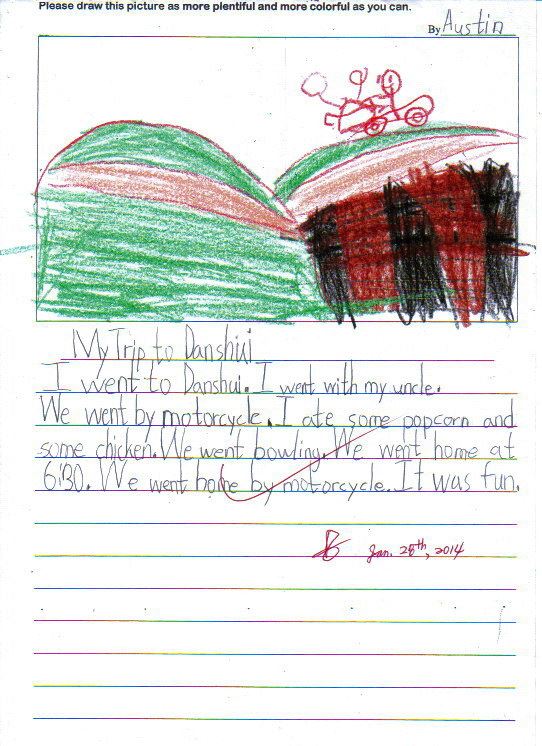 Please draw this picture as more plentiful and more colorful as you can.
By Austin
My Trip to Danshui
I went to Danshui. I went with my uncle.
We went by motorcycle. I ate some popcorn and
some chicken. We went bowling. We went home at
6:30. We went home by motorcycle. It was fun.
Jan. 28th, 2014